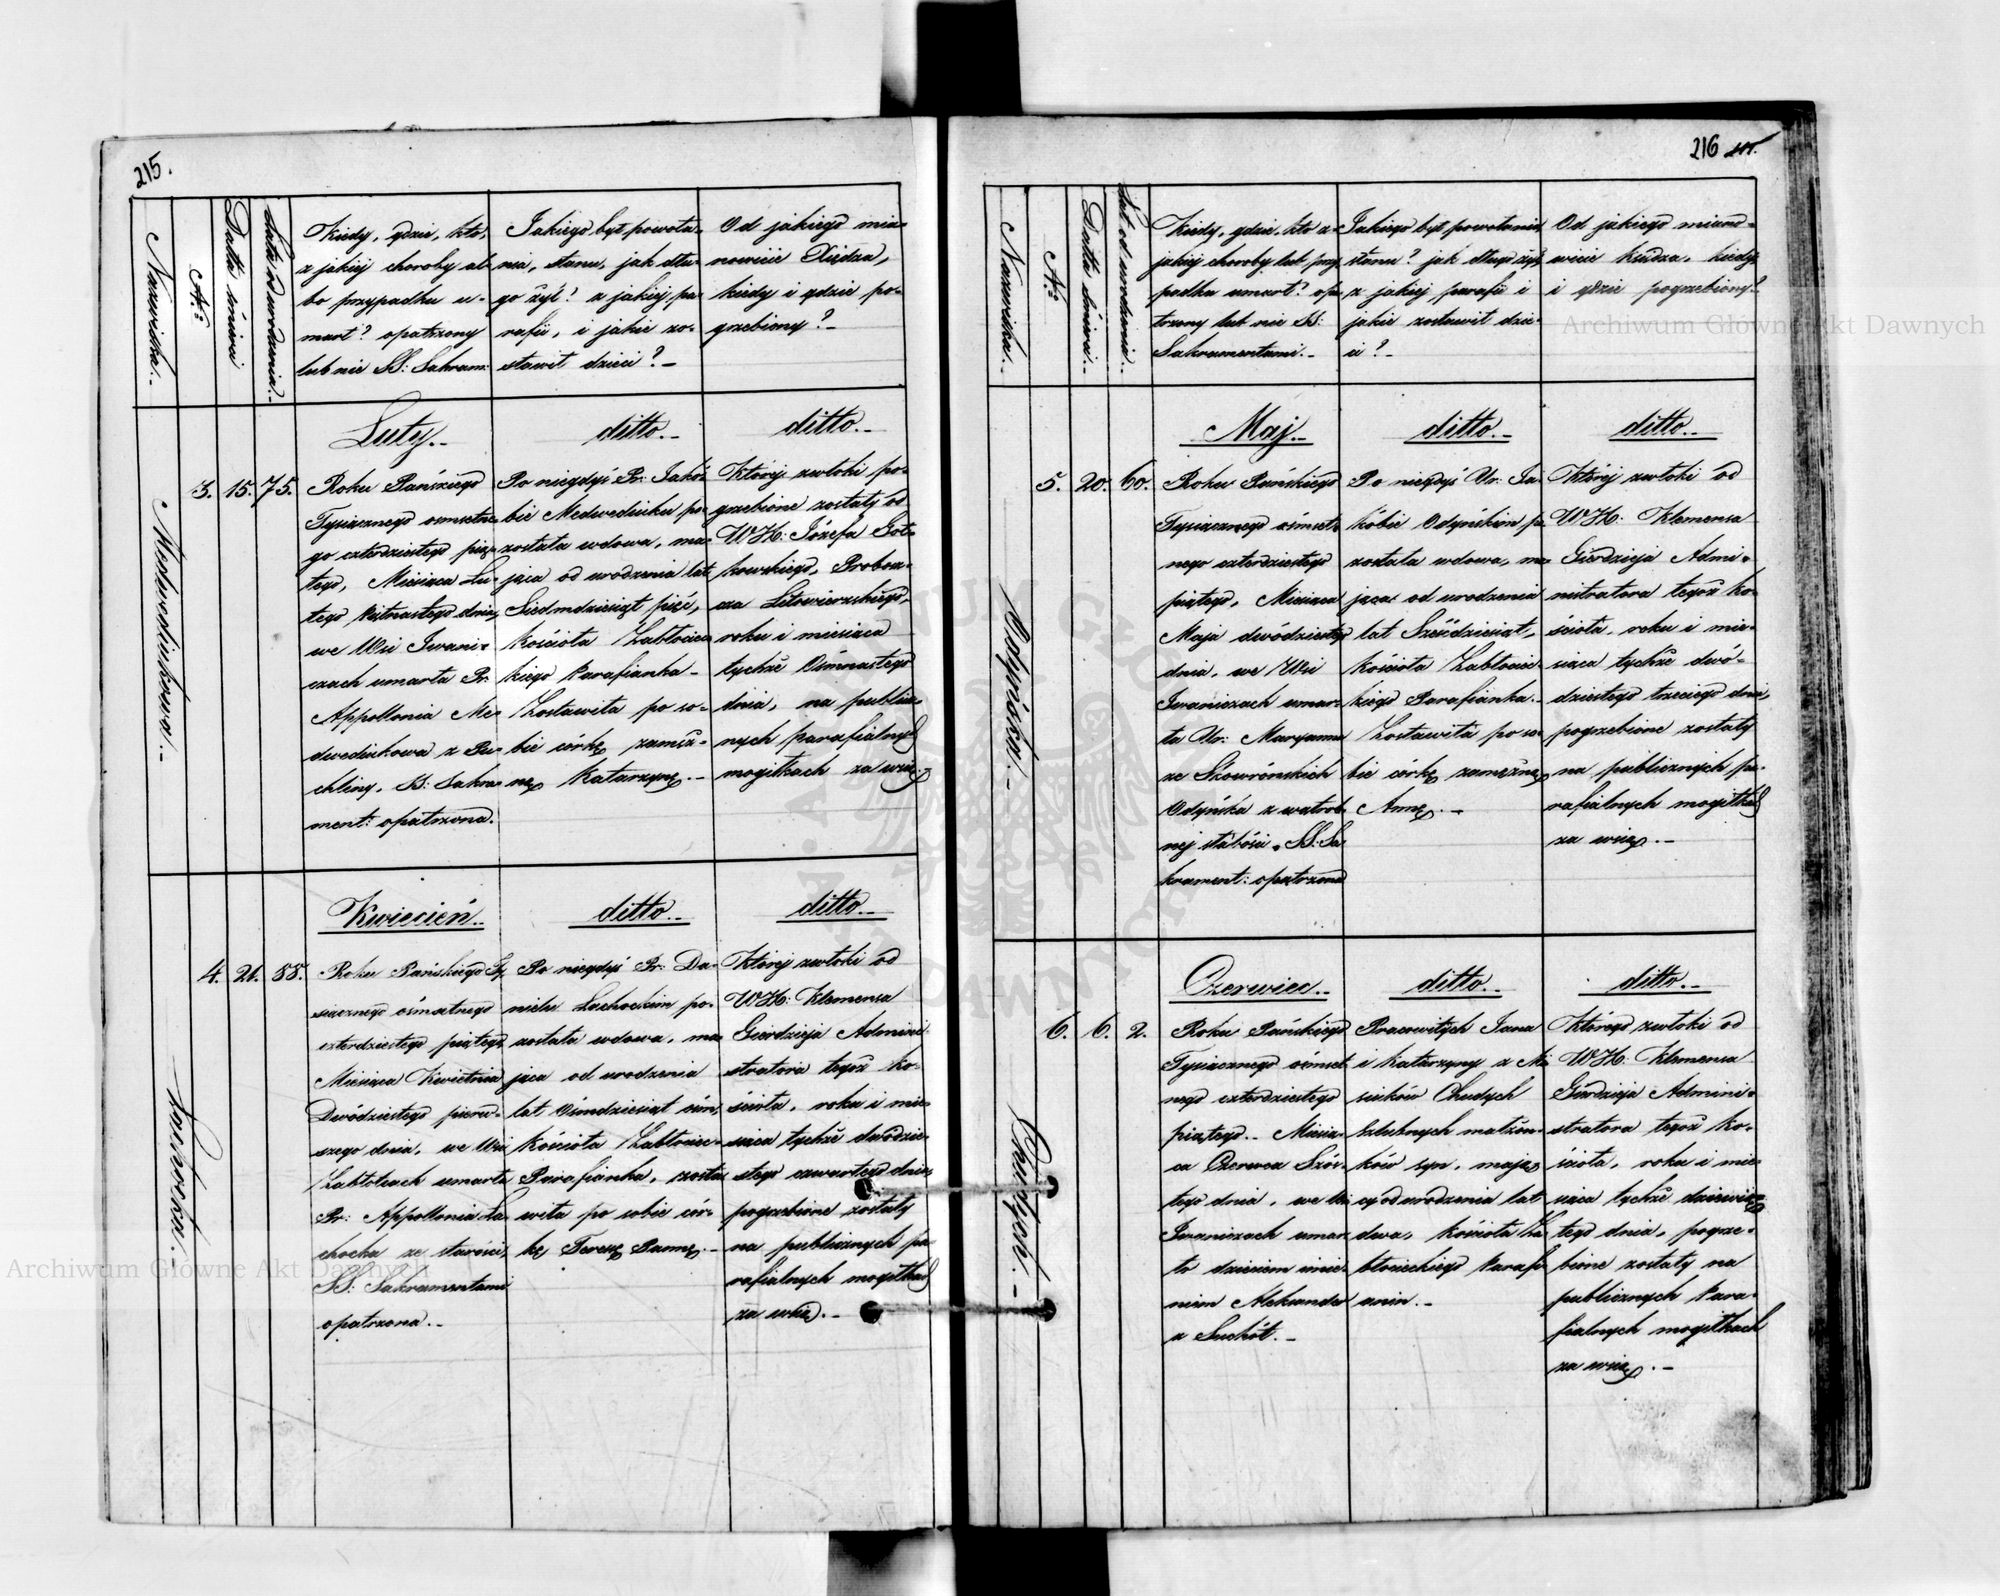 215.
Nazwiska.
№
Datta śmierci
Lata od urodzenia.
Kiedy, gdzie, kto,
z jakiéj choroby al-
bo przypadku u-
marł? opatrzony
lub nie SS: Sakram:
Jakiego był powoła-
nia, stanu, jak dłu-
go żył? z jakiéj pa-
rafii, i jakie zo-
stawił dzieci?
Od jakiego mia-
nowicie Xiędza,
kiedy i gdzie po-
grzebiony?
Luty.
ditto.
ditto.
3. 15. 75.
Roku Pańskiego
Tysiącznego ośmsetne-
go czterdziestego pią-
tego, Miesiąca Lu-
tego Piętnastego dnia,
we Wsi Iwani-
czach umarła Pr.
Appollonia Me-
dwediukowa z Pu-
chliny, SS: Sakra-
ment: opatrzona.
Po niegdyś Pr: Jakó-
bie Medwediuku po-
została wdowa, ma-
jąca od urodzenia lat
Siedmdziesiąt pięć,
kościoła Zabłociec-
kiego Parafianka
Zostawiła po so-
bie córkę zamęż-
nę Katarzynę.
Któréj zwłoki po-
grzebione zostały od
WX: Józefa Got-
kowskiego, Probosz-
cza Litowierzskiego,
roku i miesiąca
tychże Ośmnastego
dnia, na publicz-
nych parafialnych
mogiłkach za wsią.
Kwiecień.
ditto.
ditto.
4. 21. 88.
Roku Pańskiego Ty-
siącznego ośmsetnego
czterdziestego piątego
Miesiąca Kwietnia
Dwódziestego pierw-
szego dnia, we Wsi
Zabłotcach umarła
Pr: Appollonia La-
chocka ze starości,
SS: Sakramentami
opatrzona.
Po niegdyś Pr: Da-
nielu Lachockim po-
została wdowa, ma-
jąca od urodzenia
lat Ośmdziesiąt ośm,
kościoła Zabłociec-
Parafianka, zosta-
wiła po sobie cór-
kę Teressę Pannę.
Któréj zwłoki od
WX: Klemensa
Gierdzieja Admini-
stratora tegoż ko-
ścioła, roku i mie-
siąca tychże dwódzie-
stego czwartego dnia,
pogrzebione zostały
na publicznych pa-
rafialnych mogiłkach
za wsią.
216
Nazwiska.
№
Datta śmierci.
Lat od urodzenia.
Kiedy, gdzie, kto z
jakiéj choroby lub przy-
padku umarł? opa-
trzony lub nie SS:
Sakramentami.
Jakiego był powołania,
stanu? jak długo żył,
z jakiéj parafii i
jakie zostawił dzie-
ci?
Od jakiego miano-
wicie księdza, kiedy
i gdzie pogrzebiony?
Maj.
ditto.
ditto.
5. 20. 60.
Odyńska.
Roku Pańskiego
Tysiącznego ośmset-
nego czterdziestego
piątego, Miesiąca
Maja dwódziestego
dnia, we Wsi
Iwaniczach umar-
ła Ur: Maryanna
ze Skowrońskich
Odyńska z wątrob-
néj słabości, SS: Sa-
krament: opatrzona
Po niegdyś Ur: Ja-
kóbie Odyńskim po-
została wdowa, ma-
jąca od urodzenia
lat Sześdziesiąt,
kościoła Zabłociec-
kiego Parafianka.
Zostawiła po so-
bie córkę zamężnę
Annę.
Któréj zwłoki od
WX: Klemensa
Gierdzieja Admi-
nistratora tegoż ko-
ścioła, roku i mie-
siąca tychże dwó-
dziestego trzeciego dnia,
pogrzebione zostały
na publicznych pa-
rafialnych mogiłkach
za wsią.
Czerwiec.
ditto.
ditto.
6. 6. 2.
Chudych.
Roku Pańskiego
Tysiącznego ośmset-
nego czterdziestego
piątego. Miesią-
ca Czerwca Szós-
tego dnia, we Wsi
Iwaniczach umar-
ło dziecie imie-
niem Aleksander
z Suchót.
Pracowitych Jana
i Katarzyny z Mi-
siuków Chudych
ślubnych małżon-
ków syn, mają-
cy od urodzenia lat
dwa, kościoła Za-
błocieckiego Parafi-
anin.
Którego zwłoki od
WX: Klemensa
Gierdzieja Admini-
stratora tegoż ko-
ścioła, roku i mie-
siąca tychże dziewią-
tego dnia, pogrze-
bione zostały na
publicznych Para-
fialnych mogiłkach
za wsią.
Medwediukowa.
Lachocka.
Archiwum Główne Akt Dawnych
Archiwum Główne Akt Dawnych